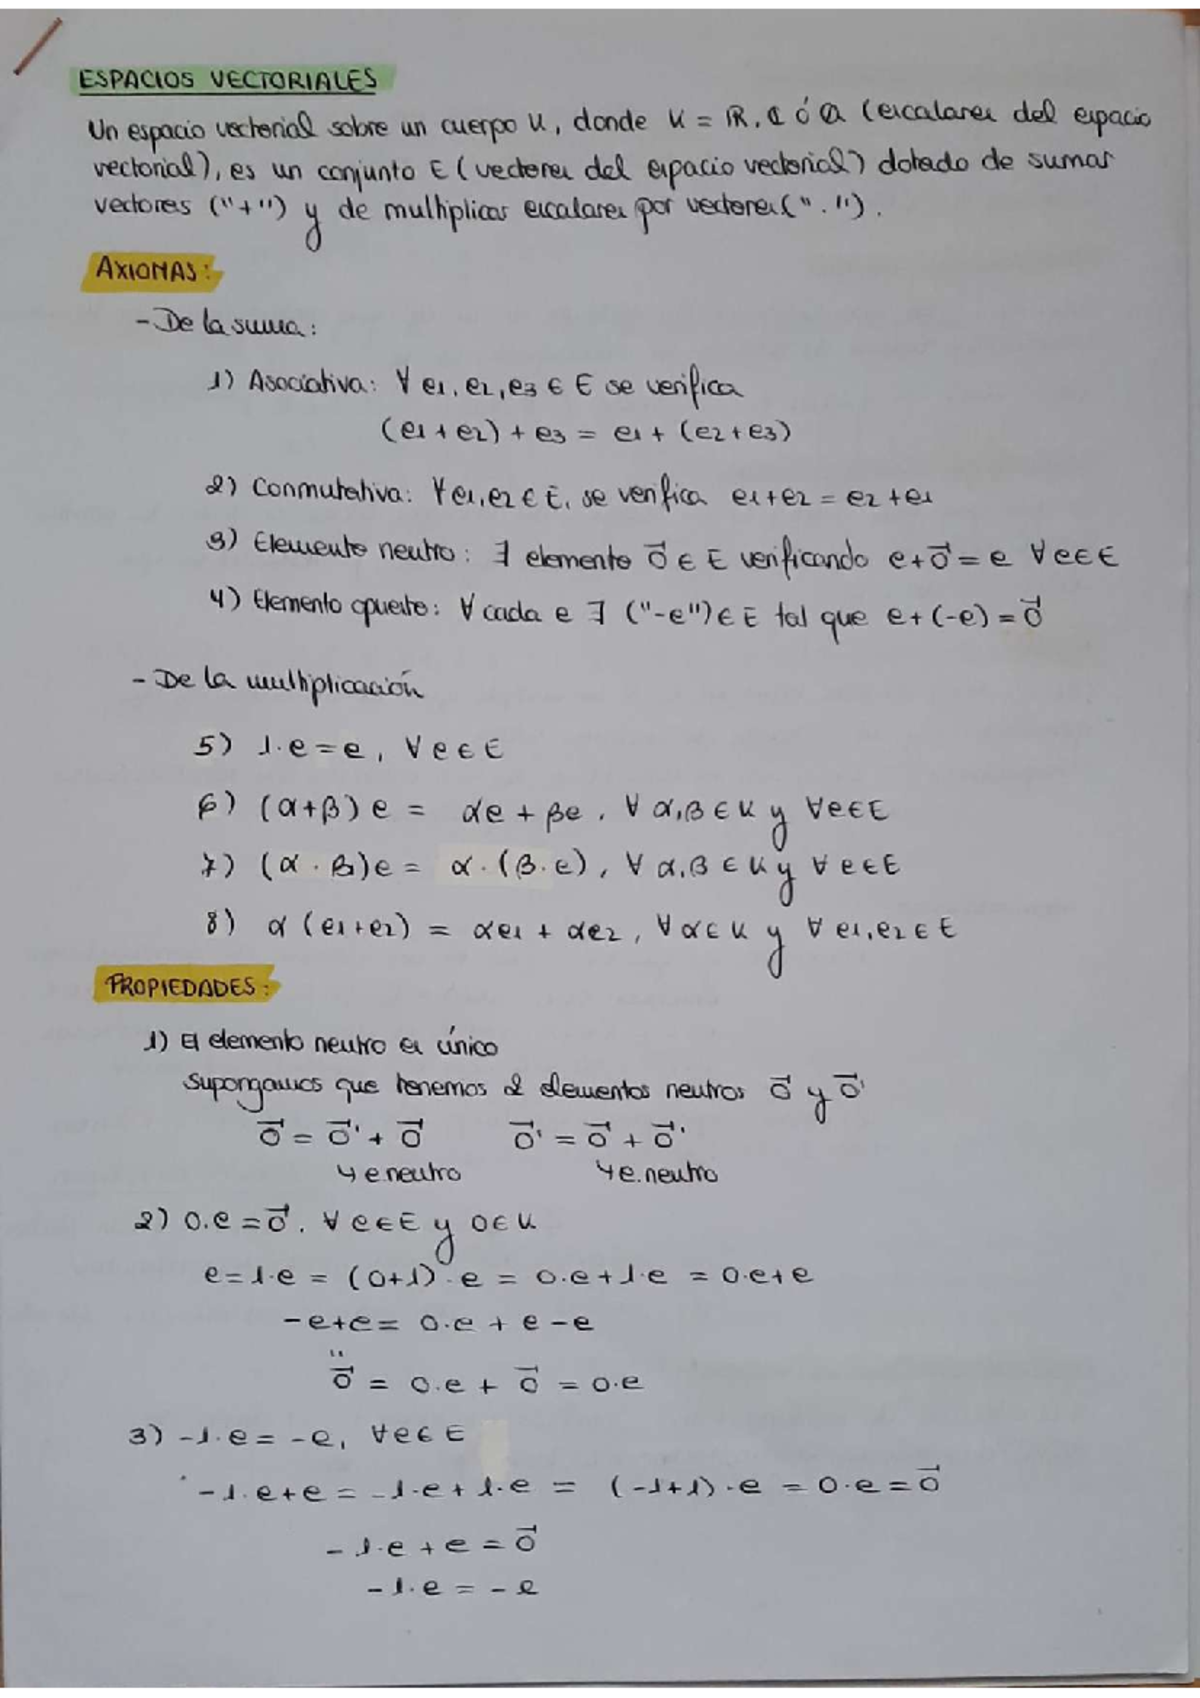 ESPACIOS VECTORIALES
Un espacio vectorial sobre un cuerpo K, donde K = ℝ, ℂ ó ℚ (escalares del espacio
vectorial), es un conjunto E (vectores del espacio vectorial) dotado de sumar
vectores ("+") y de multiplicar escalares por vectores("·").
AXIOMAS:
- De la suma:
1) Asociativa: ∀ e1, e2, e3 ∈ E se verifica
(e1 + e2) + e3 = e1 + (e2 + e3)
2) Conmutativa: ∀ e1, e2 ∈ E, se verifica e1 + e2 = e2 + e1
3) Elemento neutro: ∃ elemento 0⃗ ∈ E verificando e + 0⃗ = e ∀ e ∈ E
4) Elemento opuesto: ∀ cada e ∃ ("-e") ∈ E tal que e + (-e) = 0⃗
- De la multiplicación
5) 1·e = e, ∀ e ∈ E
6) (α+β) e = αe + βe, ∀ α, β ∈ K y ∀ e ∈ E
7) (α · β)e = α·(β·e), ∀ α, β ∈ K y ∀ e ∈ E
8) α (e1+e2) = αe1 + αe2, ∀ α ∈ K y ∀ e1, e2 ∈ E
PROPIEDADES:
1) El elemento neutro es único
Supongamos que tenemos 2 elementos neutros 0⃗ y 0⃗'
0⃗ = 0⃗' + 0⃗ 0⃗' = 0⃗ + 0⃗'
↳ e.neutro ↳ e.neutro
2) 0.e = 0⃗, ∀ e ∈ E y 0 ∈ K
e = 1·e = (0+1)·e = 0·e + 1·e = 0·e + e
-e+e = 0.e + e - e
"
0⃗ = 0.e + 0⃗ = 0.e
3) -1·e = -e, ∀ e ∈ E
-1·e+e = -1·e + 1·e = (-1+1)·e = 0·e = 0⃗
-1·e + e = 0⃗
-1·e = -e